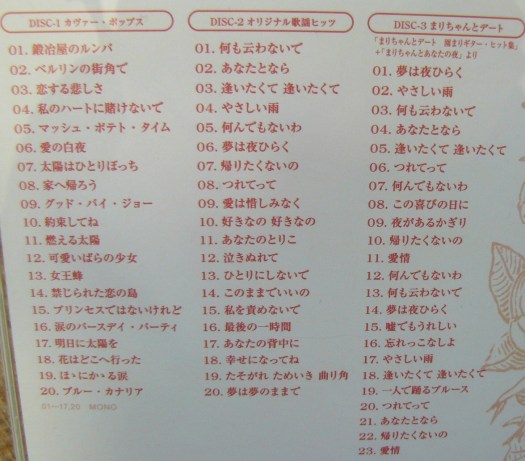 DISC-1 カヴァー・ポップス
01. 鍛冶屋のルンバ
02. ベルリンの街角で
03. 恋する悲しさ
04. 私のハートに賭けないで
05. マッシュ・ポテト・タイム
06. 愛の白夜
07. 太陽はひとりぼっち
08. 家へ帰ろう
09. グッド・バイ・ジョー
10. 約束してね
11. 燃える太陽
12. 可愛いばらの少女
13. 女王蜂
14. 禁じられた恋の島
15. プリンセスではないけれど
16. 涙のバースデイ・パーティ
17. 明日に太陽を
18. 花はどこへ行った
19. ほゝにかゝる涙
20. ブルー・カナリア
01〜17,20 MONO
DISC-2 オリジナル歌謡ヒッツ
01. 何も云わないで
02. あなたとなら
03. 逢いたくて 逢いたくて
04. やさしい雨
05. 何んでもないわ
06. 夢は夜ひらく
07. 帰りたくないの
08. つれてって
09. 愛は惜しみなく
10. 好きなの 好きなの
11. あなたのとりこ
12. 泣きぬれて
13. ひとりにしないで
14. このままでいいの
15. 私を責めないで
16. 最後の一時間
17. あなたの背中に
18. 幸せになってね
19. たそがれ ためいき 曲り角
20. 夢は夢のままで
DISC-3 まりちゃんとデート
「まりちゃんとデート 園まりギター・ヒット集」
+「まりちゃんとあなたの夜」より
01. 夢は夜ひらく
02. やさしい雨
03. 何も云わないで
04. あなたとなら
05. 逢いたくて 逢いたくて
06. つれてって
07. 何んでもないわ
08. この喜びの日に
09. 夜があるかぎり
10. 帰りたくないの
11. 愛情
12. 何んでもないわ
13. 何も云わないで
14. 夢は夜ひらく
15. 嘘でもうれしい
16. 忘れっこなしよ
17. やさしい雨
18. 逢いたくて 逢いたくて
19. 一人で踊るブルース
20. つれてって
21. あなたとなら
22. 帰りたくないの
23. 愛情